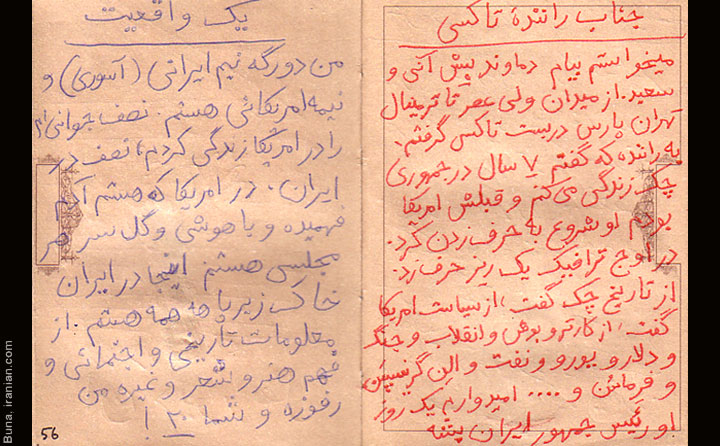 جناب رانندهٔ تاکسی
میخواستم بیام دماوند پیش آتی و
سعید. از میدان ولی عصر تا ترمینال
تهران پارس دربست تاکسی گرفتم.
به راننده که گفتم ۷ سال در جمهوری
چک زندگی می کنم و قبلش امریکا
بودم او شروع به حرف زدن کرد.
در اوج ترافیک یک ریز حرف زد.
از تاریخ چک گفت، از سیاست امریکا
گفت، از کارتر و بوش و انقلاب و جنگ
و دلار و یورو و نفت و الن گریسپن
و .... امیدوارم یک روز
او رئیس جمهور ایران بشه
یک واقعیت
من دورگه نیم ایرانی (آسوری) و
نیمه امریکائی هستم. نصف جوانی ام
را در امریکا زندگی کردم، نصف در
ایران. در امریکا که هستم آدم
فهمیده و باهوشی و گل سر هر
مجلسی هستم اینجا در ایران
خاک زیر پا همه هستم. از
معلومات تاریخی و اجتماعی و
فهم هنر و شعر و غیره من
رفوزه و شما ۲۰ !
56
Buna, iranian.com